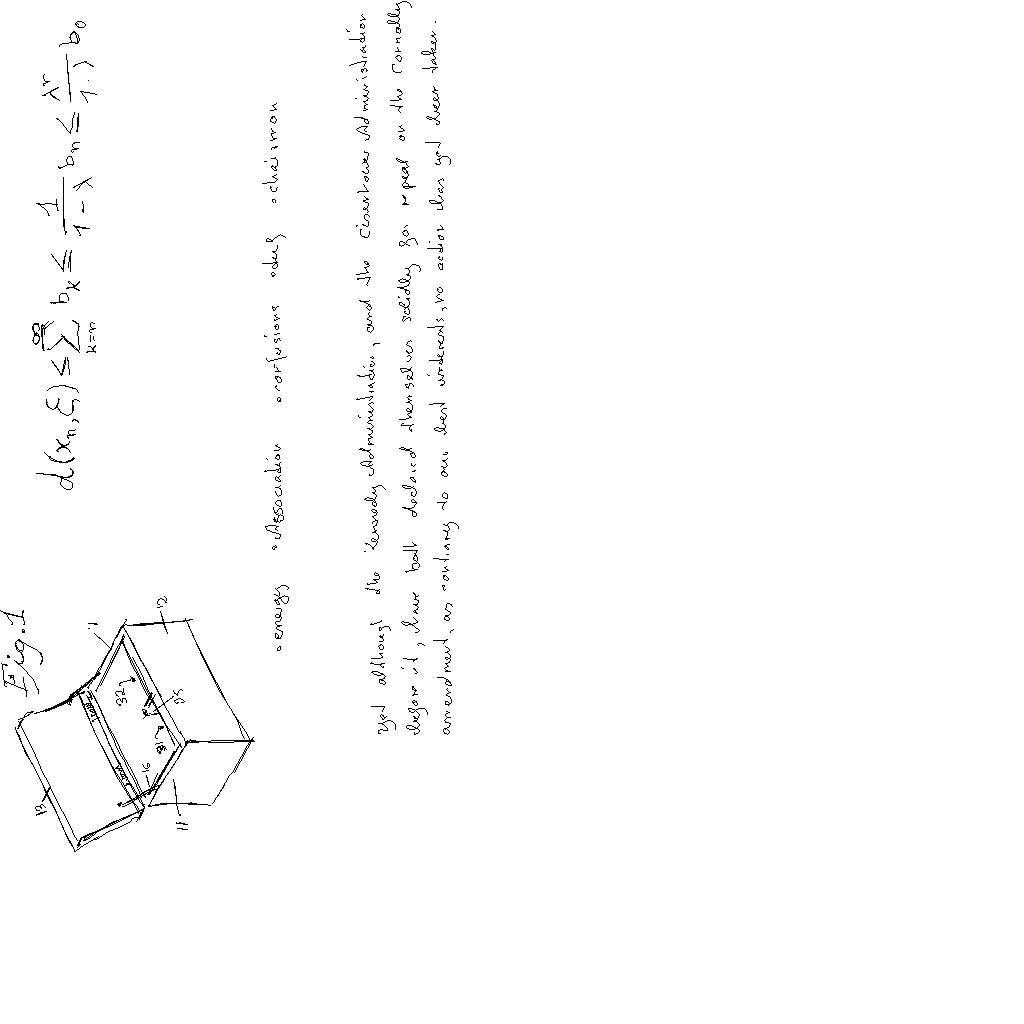 Fig.1
13
11
12
32
25
18
16
11
d(xₙ, ξ) ≤ ∑_{k=n}^{∞} b_k ≤ \frac{1}{1-λ} bₙ ≤ \frac{λⁿ}{1-λ} b₀
• energy • Association • confusions • duty • chairman
yet although the Kennedy Administration, and the Eisenhower Administration
before it, have both declared themselves solidly for repeal of the Connally
amendment, as contrary to our best interests, no action has yet been taken.